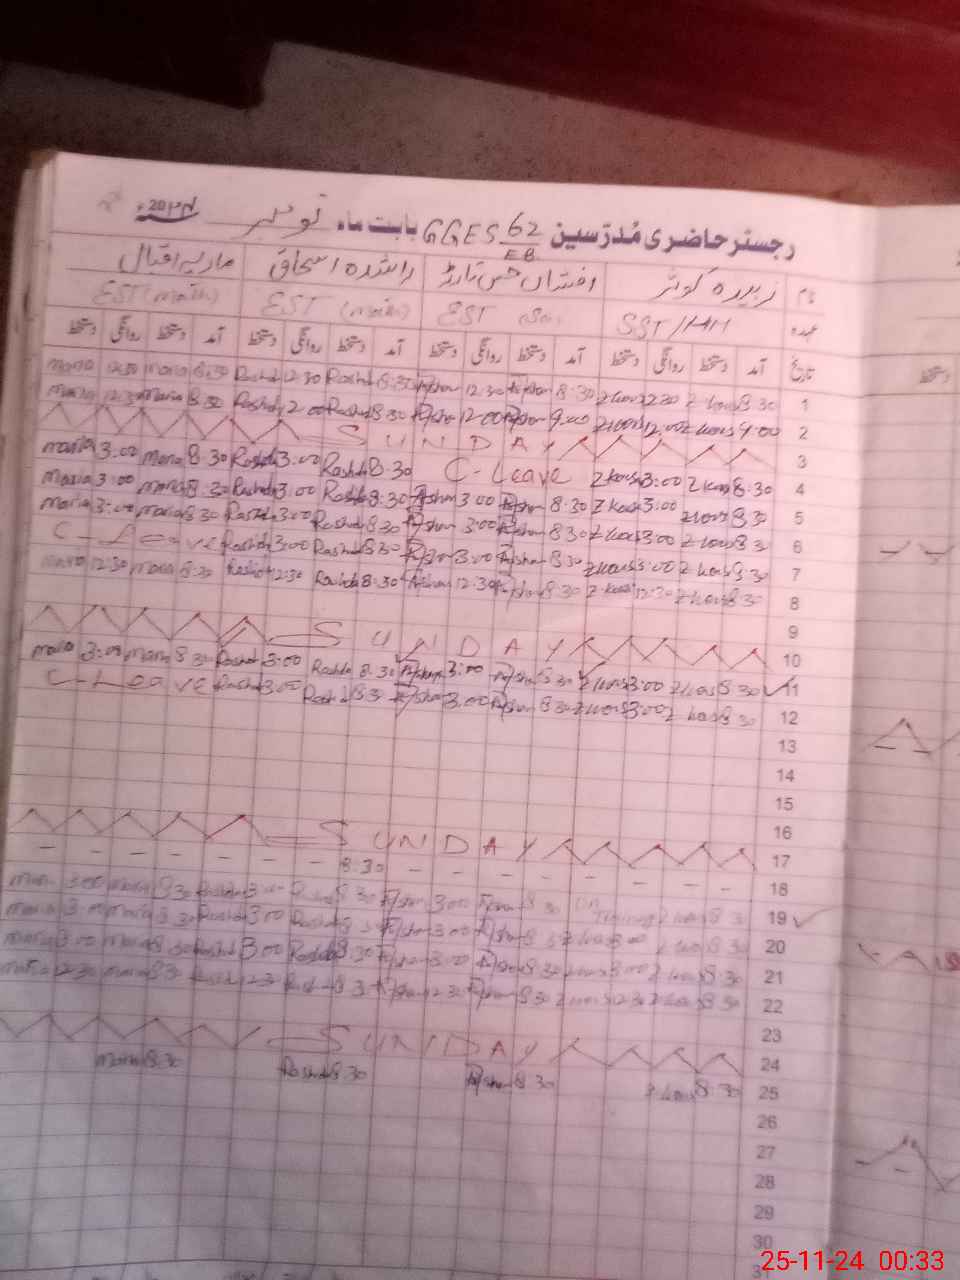 رجسٹر حاضری مُدرّسین GGES 62/EB بابت ماہ نومبر 2024ء
نام زبیدہ کوثر افشاں حسن تارڑ راشدہ اسحاق ماریہ اقبال
عہدہ SST/HM EST (Sci) EST (math) EST (math)
تاریخ آمد دستخط روانگی دستخط آمد دستخط روانگی دستخط آمد دستخط روانگی دستخط آمد دستخط روانگی دستخط
maria 12:30 maria 8:30 Rashda 12:30 Rashda 8:30 Afshan 12:30 Afshan 8:30 Zkous 12:30 Zkous 8:30 1
maria 12:30 maria 8:30 Rashda 12:00 Rashda 8:30 Afshan 12:00 Afshan 9:00 Zkous 12:00 Zkous 9:00 2
SUNDAY 3
maria 3:00 maria 8:30 Rashda 3:00 Rashda 8:30 C-Leave Zkous 3:00 Zkous 8:30 4
maria 3:00 maria 8:30 Rashda 3:00 Rashda 8:30 Afshan 3:00 Afshan 8:30 Zkous 3:00 Zkous 8:30 5
maria 3:00 maria 8:30 Rashda 3:00 Rashda 8:30 Afshan 3:00 Afshan 8:30 Zkous 3:00 Zkous 8:30 6
C-Leave Rashda 3:00 Rashda 8:30 Afshan 3:00 Afshan 8:30 Zkous 3:00 Zkous 8:30 7
maria 12:30 maria 8:30 Rashda 12:30 Rashda 8:30 Afshan 12:30 Afshan 8:30 Zkous 12:30 Zkous 8:30 8
9
SUNDAY 10
maria 3:00 maria 8:30 Rashda 3:00 Rashda 8:30 Afshan 3:00 Afshan 8:30 Zkous 3:00 Zkous 8:30 11
C-Leave Rashda 3:00 Rashda 8:30 Afshan 3:00 Afshan 8:30 Zkous 3:00 Zkous 8:30 12
13
14
15
16
SUNDAY 17
8:30 18
maria 3:00 maria 8:30 Rashda 3:00 8:30 Afshan 3:00 Afshan 8:30 ON Training Zkous 8:30 19
maria 3:00 maria 8:30 Rashda 3:00 Rashda 8:30 Afshan 3:00 Afshan 8:30 Zkous 3:00 Zkous 8:30 20
maria 3:00 maria 8:30 Rashda 3:00 Rashda 8:30 Afshan 3:00 Afshan 8:30 Zkous 3:00 Zkous 8:30 21
maria 12:30 maria 8:30 Rashda 12:30 Rashda 8:30 Afshan 12:30 Afshan 8:30 Zkous 12:30 Zkous 8:30 22
23
SUNDAY 24
maria 8:30 Rashda 8:30 Afshan 8:30 Zkous 8:30 25
26
27
28
29
30
25-11-24 00:33